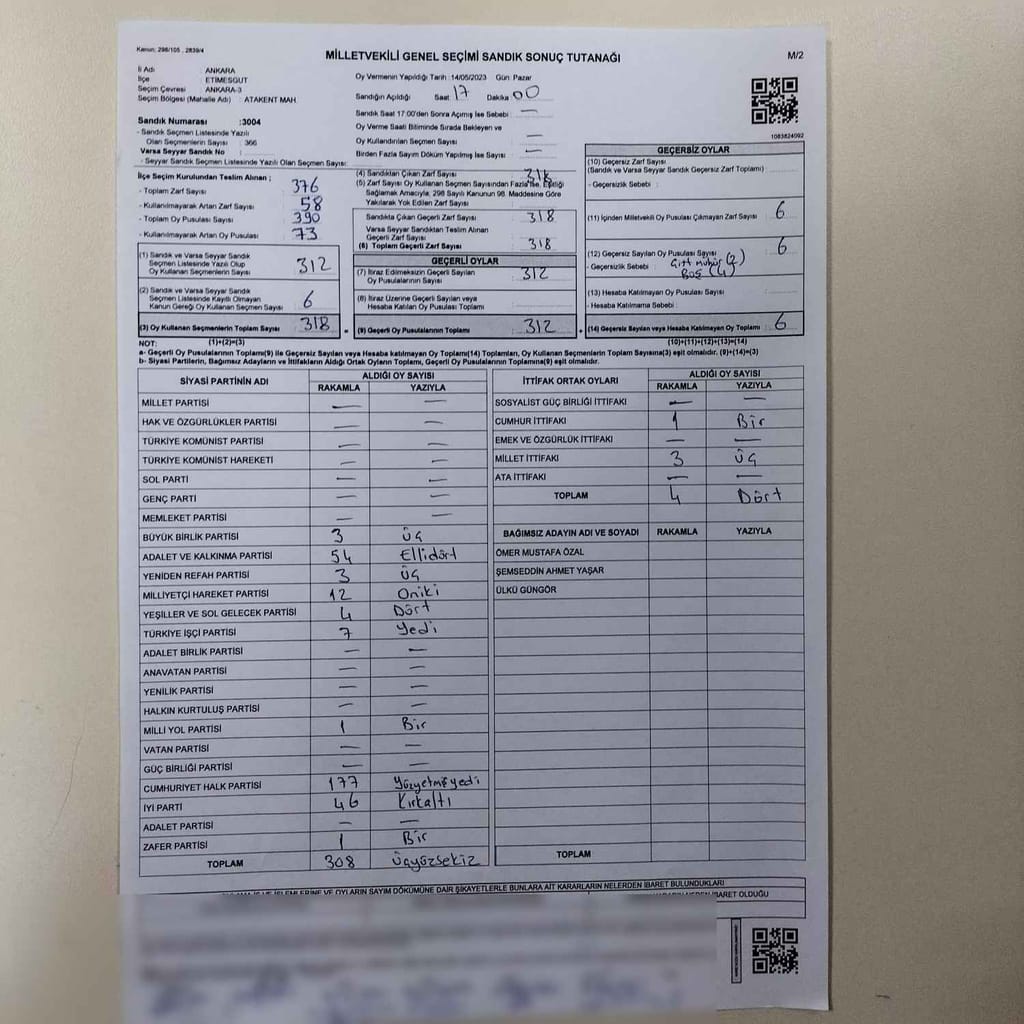 Kanun: 298/105 , 2839/4
MİLLETVEKİLİ GENEL SEÇİMİ SANDIK SONUÇ TUTANAĞI
M/2
İl Adı : ANKARA
İlçe : ETİMESGUT
Seçim Çevresi : ANKARA-3
Seçim Bölgesi (Mahalle Adı) : ATAKENT MAH.
Sandık Numarası :3004
- Sandık Seçmen Listesinde Yazılı
Olan Seçmen Sayısı : 366
Varsa Seyyar Sandık No :
- Seyyar Sandık Seçmen Listesinde Yazılı Olan Seçmen Sayısı:
Oy Vermenin Yapıldığı Tarih : 14/05/2023 Gün: Pazar
Sandığın Açıldığı Saat 17 Dakika 00
Sandık Saat 17:00'den Sonra Açımış İse Sebebi : —
Oy Verme Saati Bitiminde Sırada Bekleyen ve
Oy Kullandırılan Seçmen Sayısı : —
Birden Fazla Sayım Döküm Yapılmış İse Sayısı : —
1083824092
İlçe Seçim Kurulundan Teslim Alınan ;
- Toplam Zarf Sayısı : 376
- Kullanılmayarak Artan Zarf Sayısı : 58
- Toplam Oy Pusulası Sayısı : 390
- Kullanılmayarak Artan Oy Pusulası : 73
(1) Sandık ve Varsa Seyyar Sandık
Seçmen Listesinde Yazılı Olup
Oy Kullanan Seçmenlerin Sayısı : 312
(2) Sandık ve Varsa Seyyar Sandık
Seçmen Listesinde Kayıtlı Olmayan
Kanun Gereği Oy Kullanan Seçmen Sayısı : 6
(3) Oy Kullanan Seçmenlerin Toplam Sayısı : 318
(4) Sandıktan Çıkan Zarf Sayısı : 318
(5) Zarf Sayısı Oy Kullanan Seçmen Sayısından Fazla İse, Eşitliği
Sağlamak Amacıyla, 298 Sayılı Kanunun 98. Maddesine Göre
Yakılarak Yok Edilen Zarf Sayısı :
Sandıkta Çıkan Geçerli Zarf Sayısı : 318
Varsa Seyyar Sandıktan Teslim Alınan
Geçerli Zarf Sayısı :
(6) Toplam Geçerli Zarf Sayısı : 318
GEÇERLİ OYLAR
(7) İtiraz Edilmeksizin Geçerli Sayılan
Oy Pusulalarının Sayısı : 312
(8) İtiraz Üzerine Geçerli Sayılan veya
Hesaba Katılan Oy Pusulası Toplamı :
(9) Geçerli Oy Pusulalarının Toplamı : 312
GEÇERSİZ OYLAR
(10) Geçersiz Zarf Sayısı
(Sandık ve Varsa Seyyar Sandık Geçersiz Zarf Toplamı) :
- Geçersizlik Sebebi :
(11) İçinden Milletvekili Oy Pusulası Çıkmayan Zarf Sayısı : 6
(12) Geçersiz Sayılan Oy Pusulası Sayısı : 6
- Geçersizlik Sebebi : Çift mühür (2)
Boş (4)
(13) Hesaba Katılmayan Oy Pusulası Sayısı :
- Hesaba Katılmama Sebebi :
(14) Geçersiz Sayılan veya Hesaba Katılmayan Oy Toplamı : 6
NOT: (1)+(2)=(3) (10)+(11)+(12)+(13)=(14)
a- Geçerli Oy Pusulalarının Toplamı(9) ile Geçersiz Sayılan veya Hesaba katılmayan Oy Toplamı(14) Toplamları, Oy Kullanan Seçmenlerin Toplam Sayısına(3) eşit olmalıdır. (9)+(14)=(3)
b- Siyasi Partilerin, Bağımsız Adayların ve İttifakların Aldığı Ortak Oyların Toplamı, Geçerli Oy Pusulalarının Toplamına(9) eşit olmalıdır.
SİYASİ PARTİNİN ADI ALDIĞI OY SAYISI
RAKAMLA YAZIYLA
MİLLET PARTİSİ — —
HAK VE ÖZGÜRLÜKLER PARTİSİ — —
TÜRKİYE KOMÜNİST PARTİSİ — —
TÜRKİYE KOMÜNİST HAREKETİ — —
SOL PARTİ — —
GENÇ PARTİ — —
MEMLEKET PARTİSİ — —
BÜYÜK BİRLİK PARTİSİ 3 üç
ADALET VE KALKINMA PARTİSİ 54 Ellidört
YENİDEN REFAH PARTİSİ 3 üç
MİLLİYETÇİ HAREKET PARTİSİ 12 Oniki
YEŞİLLER VE SOL GELECEK PARTİSİ 4 Dört
TÜRKİYE İŞÇİ PARTİSİ 7 Yedi
ADALET BİRLİK PARTİSİ — —
ANAVATAN PARTİSİ — —
YENİLİK PARTİSİ — —
HALKIN KURTULUŞ PARTİSİ — —
MİLLİ YOL PARTİSİ 1 Bir
VATAN PARTİSİ — —
GÜÇ BİRLİĞİ PARTİSİ — —
CUMHURİYET HALK PARTİSİ 177 Yüzyetmişyedi
İYİ PARTİ 46 Kırkaltı
ADALET PARTİSİ — —
ZAFER PARTİSİ 1 Bir
TOPLAM 308 Üçyüzsekiz
İTTİFAK ORTAK OYLARI ALDIĞI OY SAYISI
RAKAMLA YAZIYLA
SOSYALİST GÜÇ BİRLİĞİ İTTİFAKI — —
CUMHUR İTTİFAKI 1 Bir
EMEK VE ÖZGÜRLÜK İTTİFAKI — —
MİLLET İTTİFAKI 3 üç
ATA İTTİFAKI — —
TOPLAM 4 Dört
BAĞIMSIZ ADAYIN ADI VE SOYADI RAKAMLA YAZIYLA
ÖMER MUSTAFA ÖZAL
ŞEMSEDDİN AHMET YAŞAR
ÜLKÜ GÜNGÖR
TOPLAM
İŞLEMLERİNE VE OYLARIN SAYIM DÖKÜMÜNE DAİR ŞİKAYETLERLE BUNLARA AİT KARARLARIN NELERDEN İBARET BULUNDUKLARI
İBARET OLDUĞU